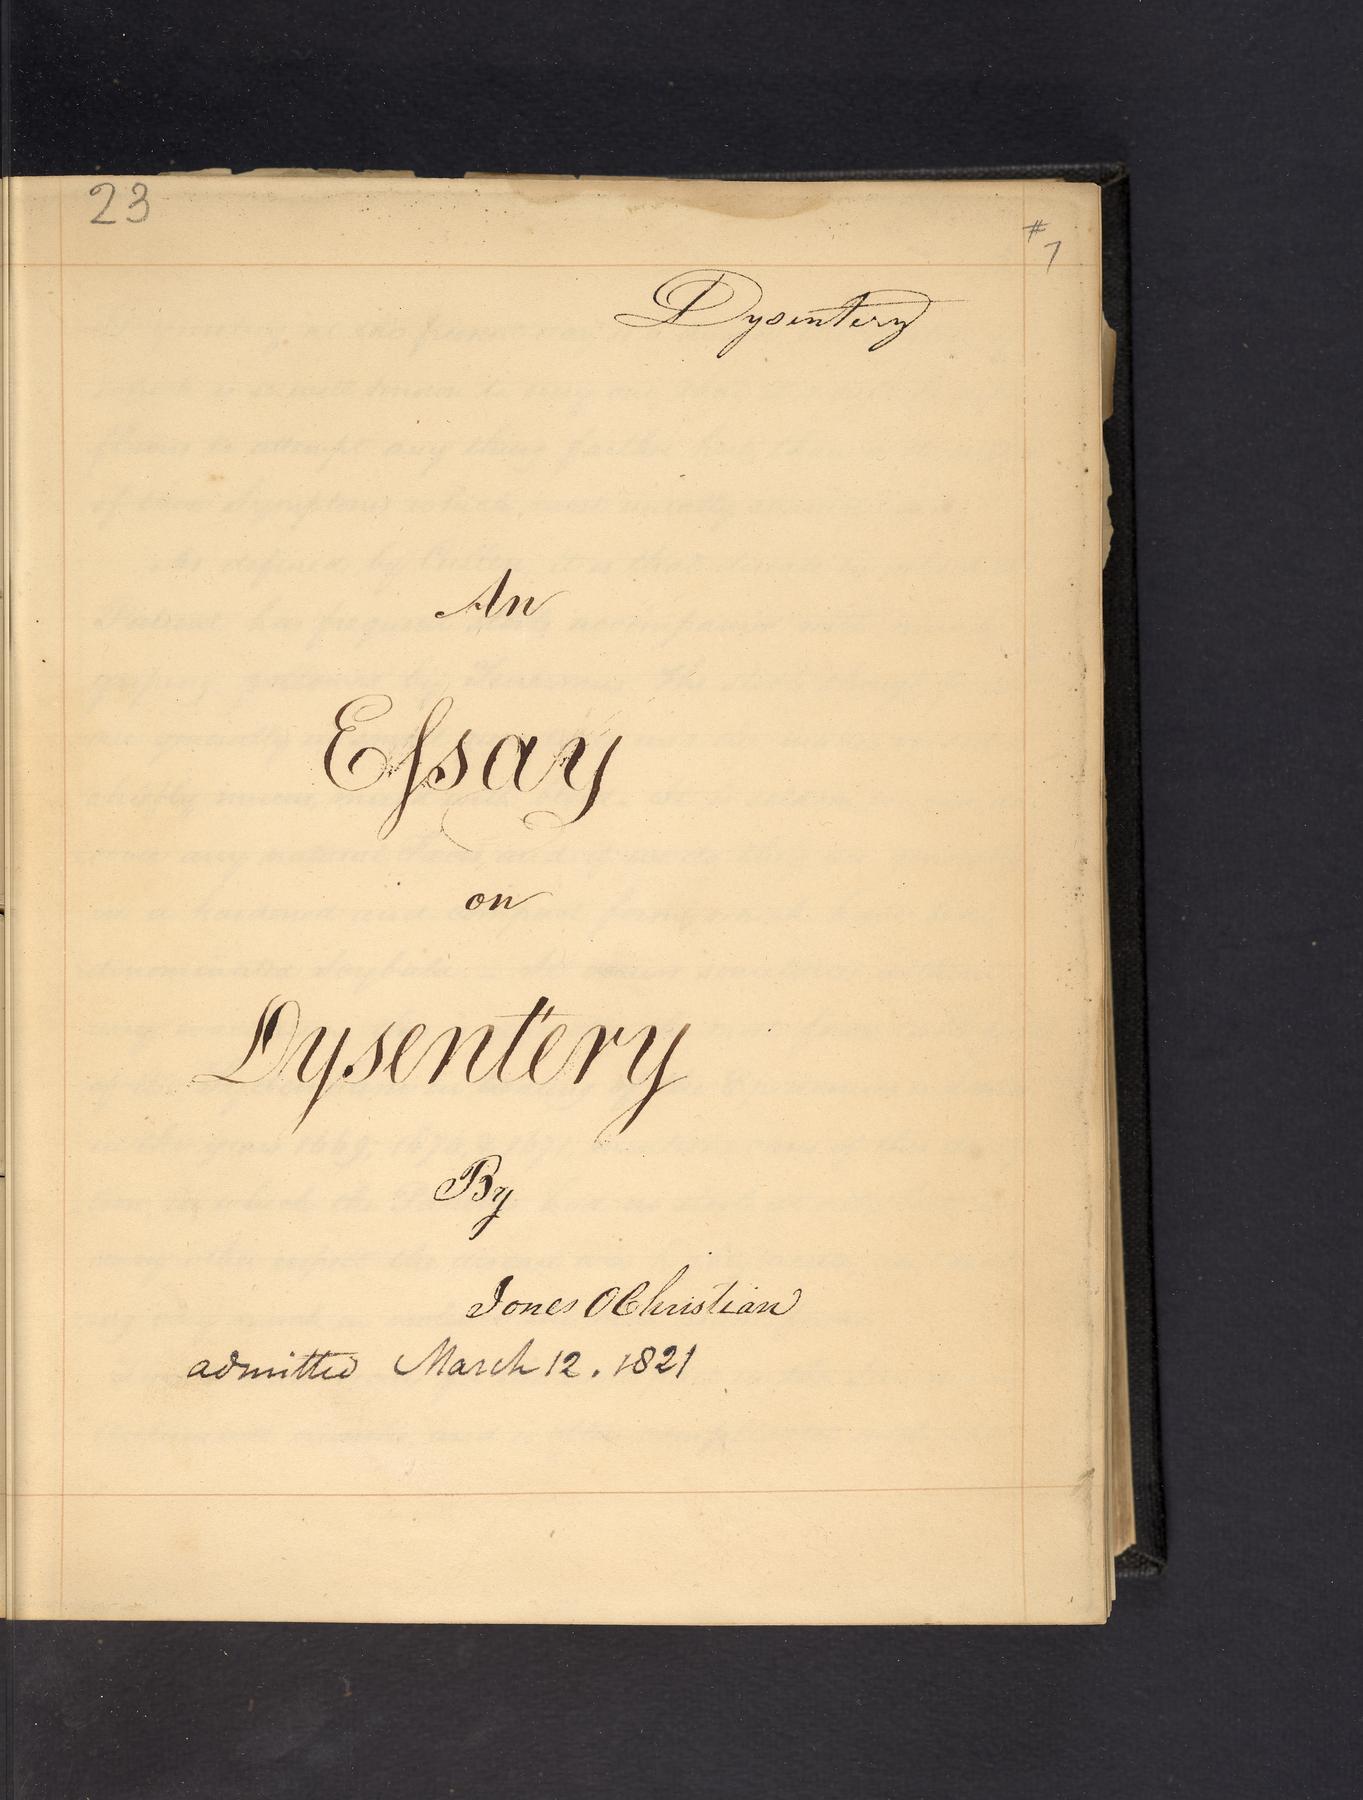 23
#7
Dysentery
An
Eſsay
on
Dysentery
By
Jones O Christian
admitted March 12. 1821